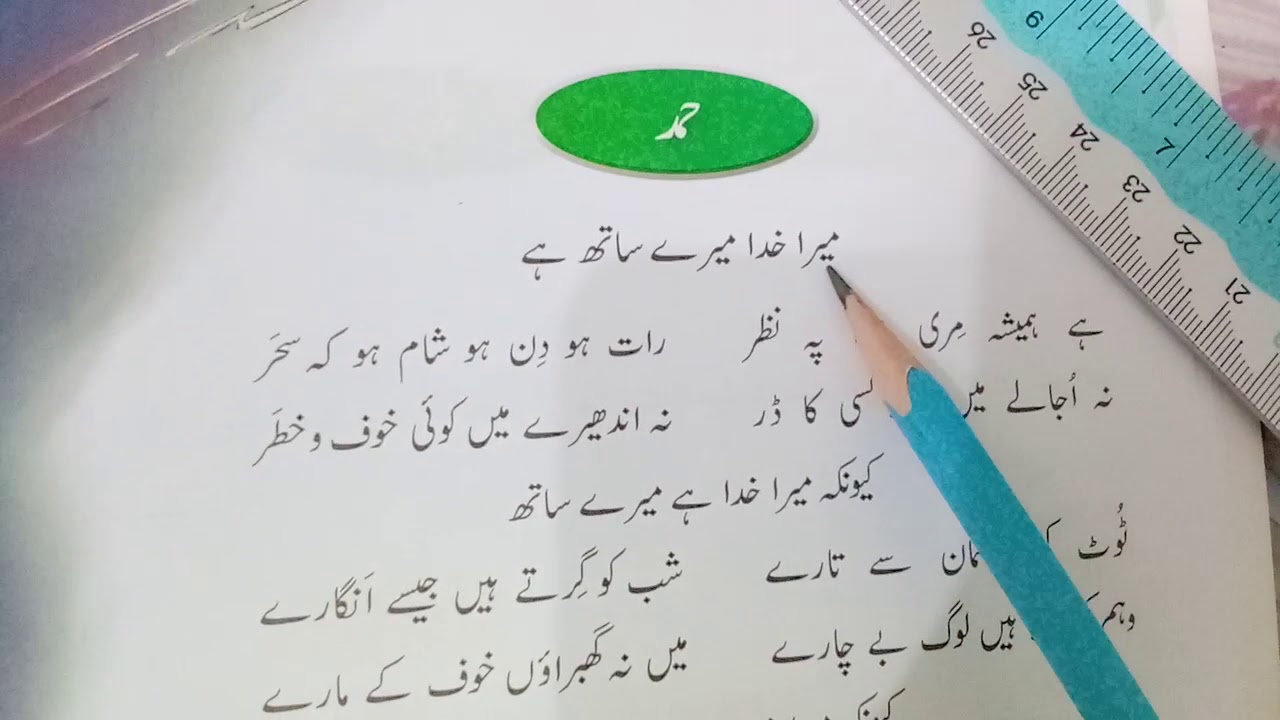 حمد
میرا خدا میرے ساتھ ہے
ہے ہمیشہ مِری پہ نظر رات ہو دِن ہو شام ہو کہ سحَر
نہ اُجالے میں کا ڈر نہ اندھیرے میں کوئی خوف و خطَر
کیونکہ میرا خدا ہے میرے ساتھ
ٹُوٹ سے تارے شب کو گِرتے ہیں جیسے اَنگارے
ہیں لوگ بے چارے میں نہ گھبراؤں خوف کے مارے
26
25
24
23
22
21
9
7